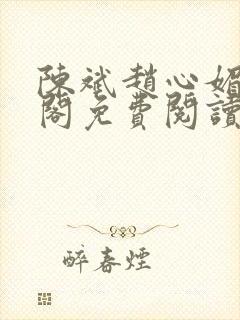 陳斌趙心媚
閣免費閱讀
醉春煙